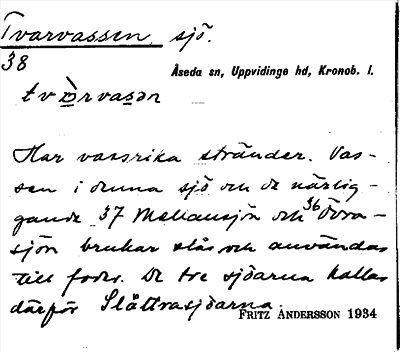 Tvarvassen, sjö.
38
Åseda sn, Uppvidinge hd, Kronob. l.
tvàrvasən
Har vassrika stränder. Vas-
sen i denna sjö och de närlig-
gande 37 Mellansjön och 36 Övra-
sjön brukar slås och användas
till foder. De tre sjöarna kallas
därför Slåttrasjöarna.
FRITZ ANDERSSON 1934